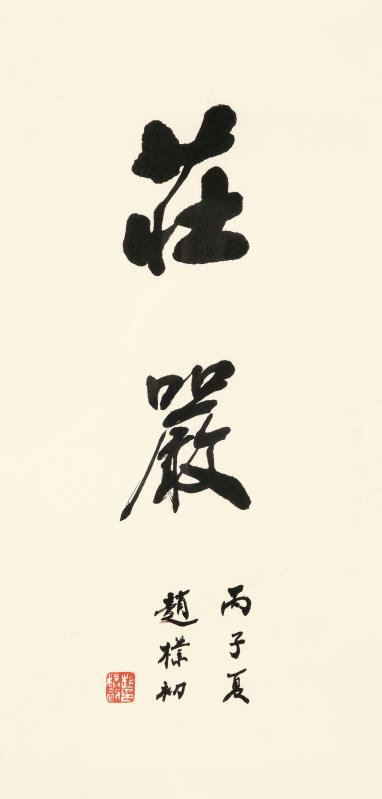 莊嚴
丙子夏
趙樸初